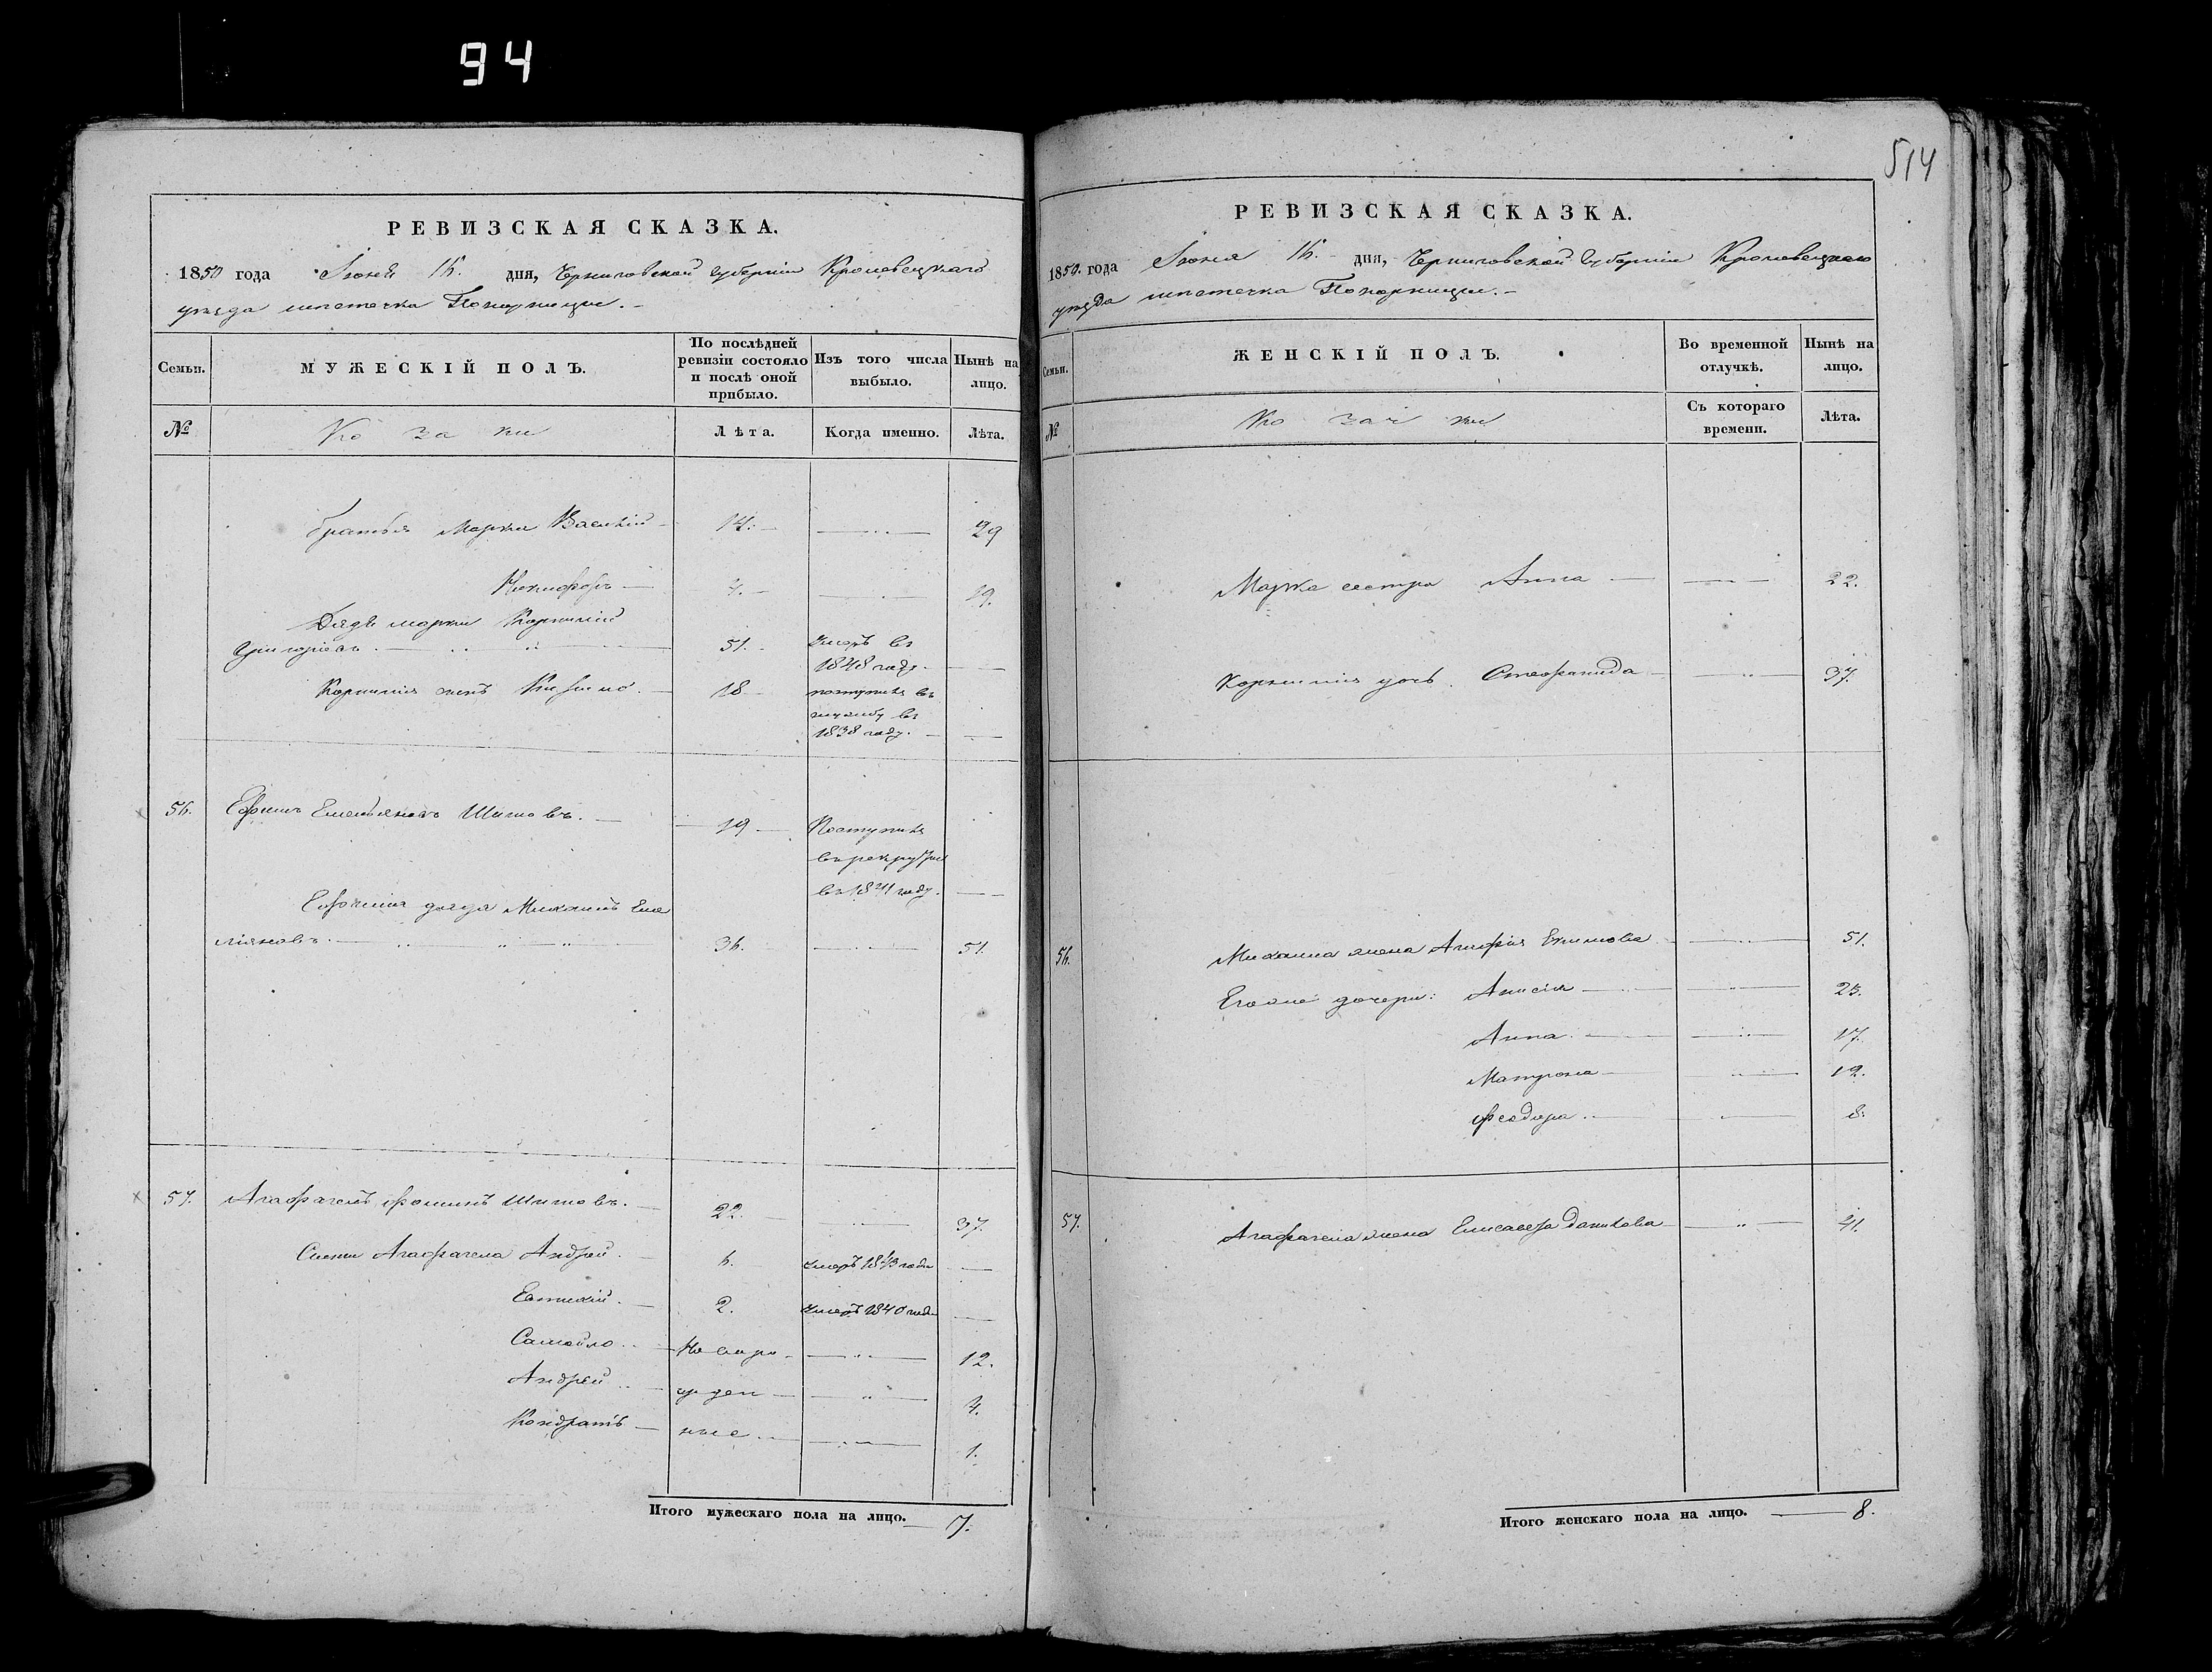 94
514
РЕВИЗСКАЯ СКАЗКА.
1850 года Іюня 15. дня, Черниговской губерніи Кролевецкаго
уезда местечка Понорницы.
Семьи. МУЖЕСКІЙ ПОЛЪ. По послѣдней ревизіи состояло и послѣ оной прибыло. Изъ того числа выбыло. Нынѣ на лицо.
№ Козаки Лѣта. Когда именно. Лѣта.
братья Марка Василій 14. 29
Никифоръ 4. 19.
Дядя Марки Корнилій
Григорьевъ 51. умеръ въ
1848 году.
Корнилія сынъ 18 поступилъ въ
службу въ
1838 году.
56. Ефимъ Емельяновъ Шитовъ. 19 Поступилъ
въ рекруты
въ 1841 году.
Ефима дядя Михаилъ Еме
ліяновъ. 36. 51.
57. Агафагелъ Фоминъ Шитовъ. 22. 37.
Сыны Агафагела Андрей. 6. умеръ 1843 года
Евтихій. 2. умеръ 1840 года
Самойло Новоро 12.
Андрей жден 4.
Кондратъ ные 1.
Итого мужескаго пола на лицо. 7.
РЕВИЗСКАЯ СКАЗКА.
1850. года Іюня 15. дня, Черниговской губерніи Кролевецкаго
уезда местечка Понорницы.
Семьи. ЖЕНСКІЙ ПОЛЪ. Во временной отлучкѣ. Нынѣ на лицо.
№ Козачки Съ котораго времени. Лѣта.
Марка сестра Анна 22.
Корнилія дочь Стефанида 37.
56. Михаила жена Агафія Екимова 51.
Егоже дочери: Анисія 23.
Анна 17.
Матрона 12.
Феодора 8.
57. Агафагела жена Елисавета Данилова 41.
Итого женскаго пола на лицо. 8.